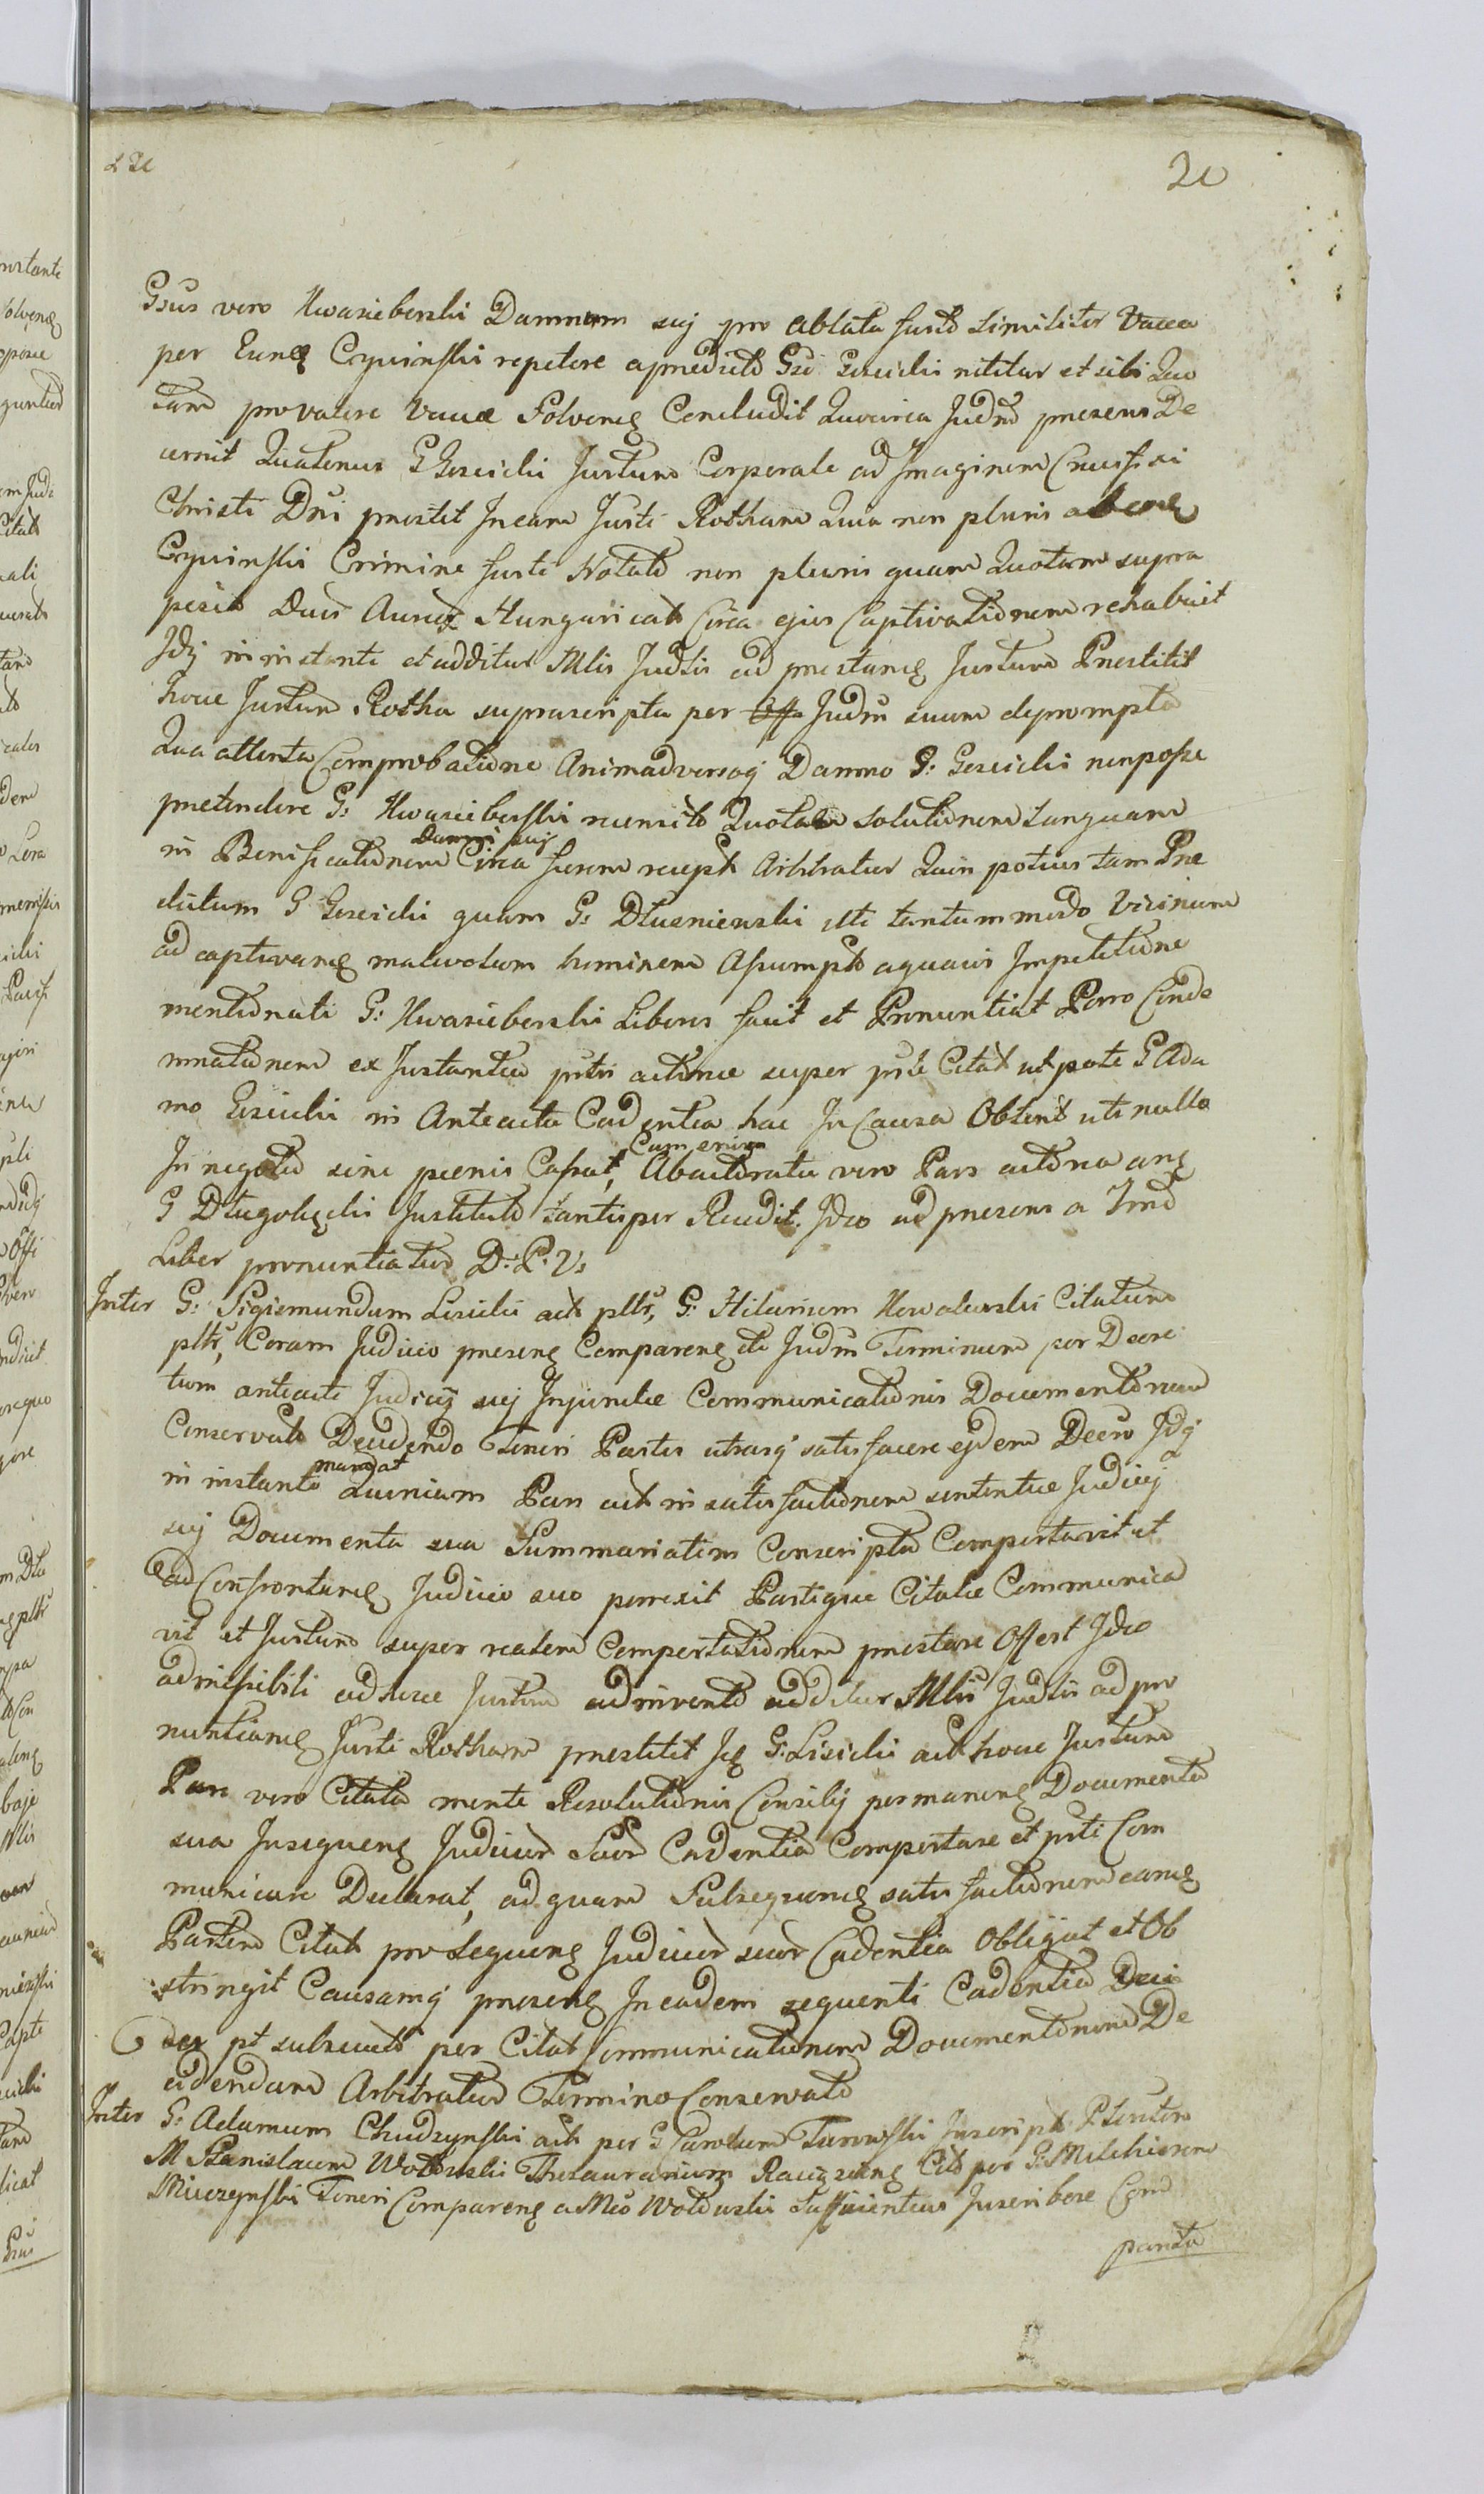 20
Gsus vero Kwasieborski Damnum suj pro ablata furto similiter Vacca
per Eund Czyzinski repetere a predicto Gso Goscicki nititur et sibi Quo
tam pro valore Vaccæ Solvend Concludit Quocirca Judm presens De
cernit Quatenus G Goscicki Jurtum Corporale ad Imaginem Crucifixi
Christi Dni prestet In eam Jurti Rotham Quia non pluris ab eod
Czyzinski Crimine furti Notato non pluris quam Quotam supra
Duor Aureor Hungaricals Circa ejus Captivationem rehabuit
Idq in instanti et additus Mlis Judlis ad prestand Jurtum Prestitit
hocce Jurtum Rotha suprascripta per Judm suum deprompta
Qua attenta Comprobatione Animadversoq Damno G: Goscicki non posse
pretendere G: Kwasieborski recensito Quotam solutionem tanquam
Damni suj
in Benificationem Circa furem recept Arbitratur Quin potius tam Pre
dictum G Goscicki quam G: Dłuzniewski
tantummodo Vicinum
ad captivand malevolum hominem Assumpt a quavis Impetitione
mentionati G: Kwasieborski Liberos facit et Pronuntiat Porro Conde
mnationem ex Instantia prtis actorea super prte Citat utpote G Ada
mo Gosicki in Anteacta Cadentia hac In Causa Obtent uti nullo
Cum enim
In negotio sine poenis Cassat, Ab actoratu vero Pars actorea
G Długołęcki Instituto tantisper Recedit. Ideo ad presens a Tmo
Liber pronuntiatur D: P: V:
Inter G: Sigismundum Lisicki act pltr, G: Hilarium Kowalewski Citatum
pltr, Coram Judicio presend Comparend ite Judm Terminum per Decre
tum anteacti Judicij suj Injunctæ Communicationis Documentorum
Conservato Decidendo Teneri Partes utrasq satisfacere ejdem Decro Idq
mandat
in instanti Quoniam Pars act in satisfactionem sententiæ Judicij
suj Documenta sua Summariatim Conscripta Comportavit et
ad Confrontand Judicio suo porrexit Partique Citatæ Communica
vit et Jurtum super realem Comportationem prestare Offert Ideo
admissibili ad hocce Jurtum adinvento additur Mlis Judlis ad pro
nuntiand Jurti Rotham prestitit Jq G: Lisicki act hocce Jurtum
Pars vero Citata mente Resolutionis Consilij permanend Documenta
sua Insequend Judicior Suor Cadentia Comportare et prti Com
municare Declarat, ad quam Subsequend satisfactionem eand
Partem Citat pro Sequend Judicior suor Cadentia Obligat et Ob
stringit Causamq presend In eadem sequenti Cadentia
pt subsecuto per Citat Communicationem Documentorum De
cidendam Arbitratur Termino Conservato
Inter G: Adamum Chudzynski act per G Carolum Turowski Inscript Pltentem
M Stanislaum Wołowski Thesaurarium Raciązend Citd per G: Melchiorem
Miuczynski Teneri Comparend a Mco Wołowski Sufficientius Inscribere Com
parita